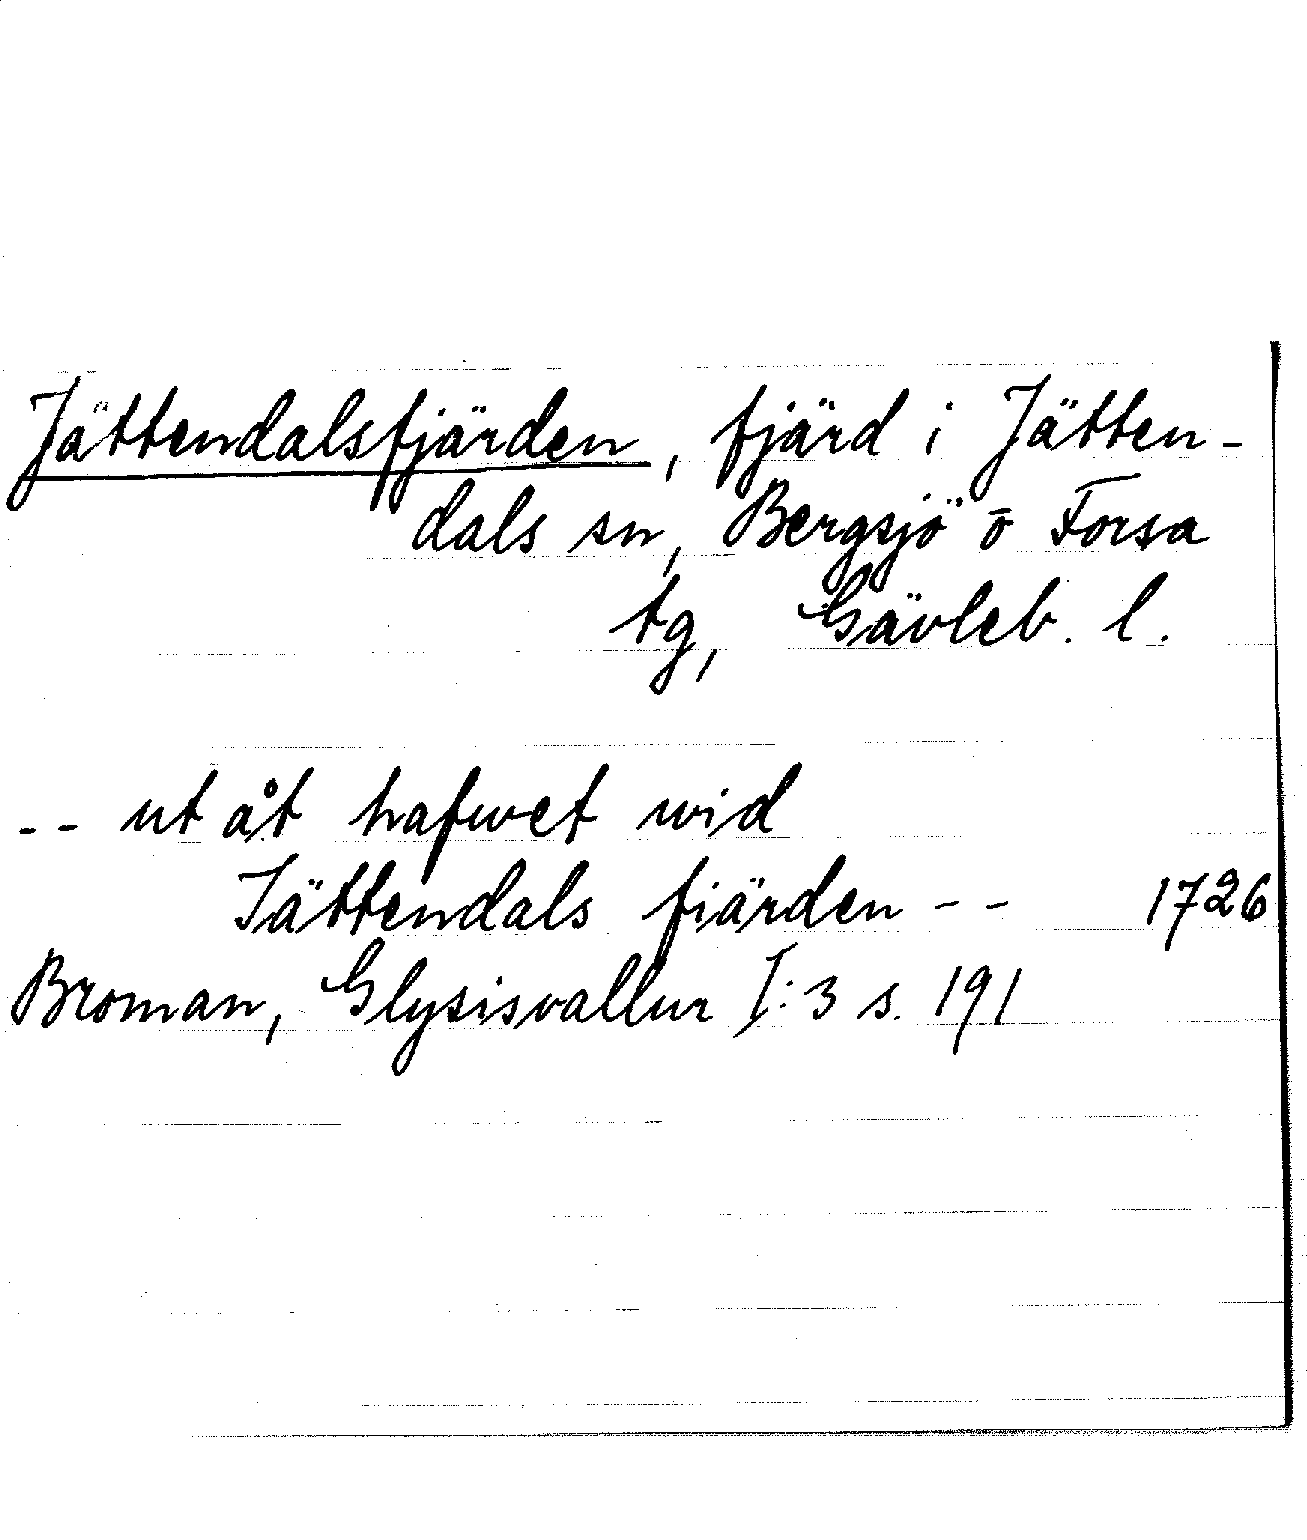 Jättendalsfjärden, fjärd i Jätten-
dals sn, Bergsjö o Forsa
tg, Gävleb. l.
-- ut åt hafwet wid
Iättendals fiärden -- 1726
Broman, Glysisvallur I:3 s. 191